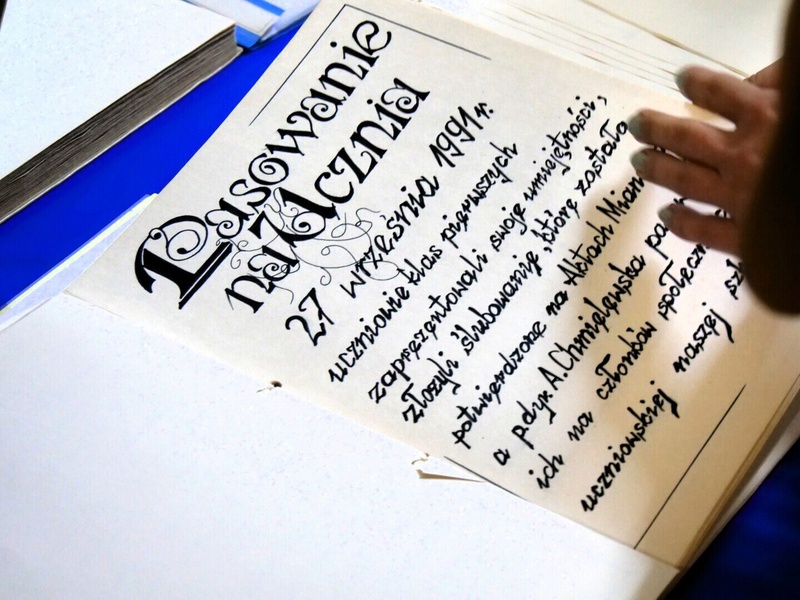 Pasowanie
na Ucznia
27 września 1991 r.
uczniowie klas pierwszych
zaprezentowali swoje umiejętności,
złożyli ślubowanie, które została
potwierdzone na Aktach Mian
a p.dyr. A.Chmielewska
ich na członków
uczniowskiej naszej